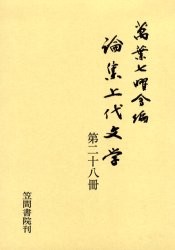 萬葉七曜会編
論集上代文学
第二十八冊
笠間書院刊